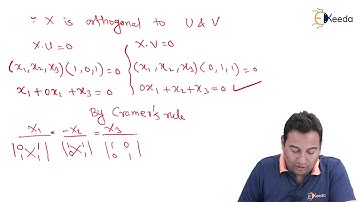 ∵ X is orthogonal to U & V
X.U=0
(x1, x2, x3)(1,0,1)=0
x1+0x2+x3=0
X.V=0
(x1, x2, x3)(0,1,1)=0
0x1+x2+x3=0
By Cramer's rule
x1 = -x2 = x3
|0 1| |1 1| |1 0|
|1 1| |0 1| |0 1|
Ekeeda